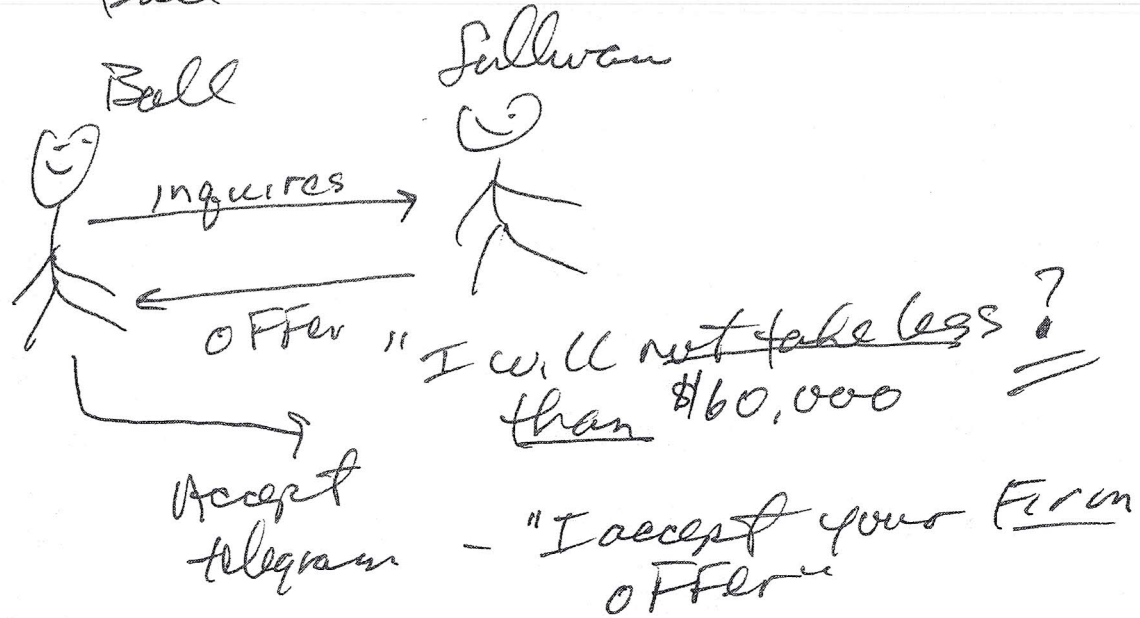 Ball
Sullivan
inquires
offer "I will not take less ?
than $160,000
Accept
telegram - "I accept your Firm
offer"